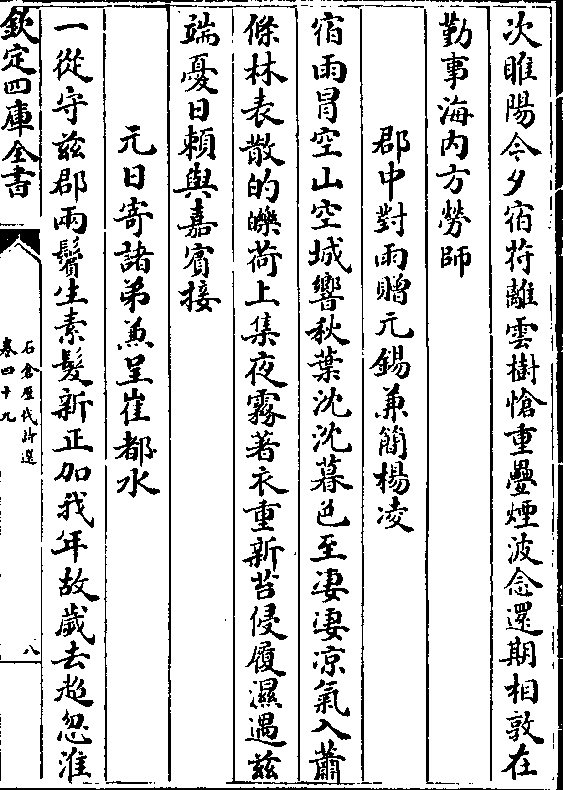 次睢陽今夕宿苻離雲樹愴重疊煙波念還期相敦在
勤事海内方勞師
郡中對雨贈元錫兼簡楊凌
宿雨冒空山空城響秋葉沈沈暮色至凄凄凉氣入蕭
條林表散的皪荷上集夜霧著衣重新苔侵履濕遇兹
端憂日賴與嘉賓接
元日寄諸弟兼呈崔都水
一從守兹郡兩鬢生素髮新正加我年故歲去超忽淮
欽定四庫全書
石倉歷代詩選
卷四十九
八